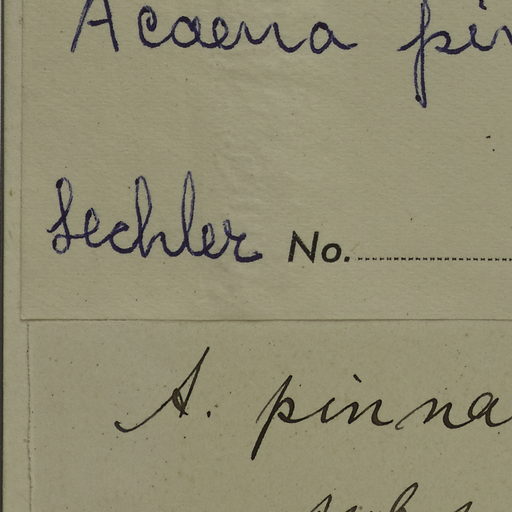 Acaena pin
Lechler No.
A. pinna